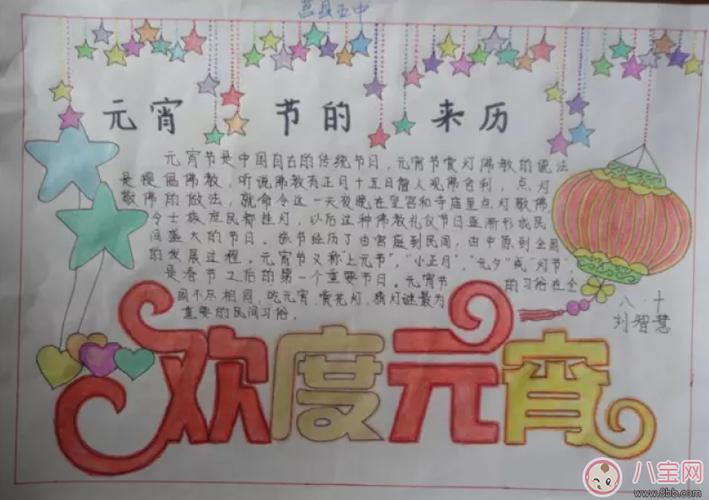 莒县五中
元宵节的来历
元宵节是中国自古的传统节日，元宵节赏灯佛教的说法
是提倡佛教，听说佛教有正月十五日僧人观佛舍利，点灯
敬佛的做法，就命令这一天夜晚在皇宫和寺庙里点灯敬佛
令士族庶民都挂灯，以后这种佛教礼仪节日逐渐形成民
间盛大的节日。该节经历了由宫庭到民间，由中原到全国
的发展过程。元宵节又称"上元节"，"小正月"，"元夕"或"灯节"，
是春节之后的第一个重要节日。元宵节的习俗在全
国不尽相同，吃元宵，赏花灯，猜灯谜最为
重要的民间习俗。
八．十
刘智慧
欢度元宵
八宝网
www.8bb.com